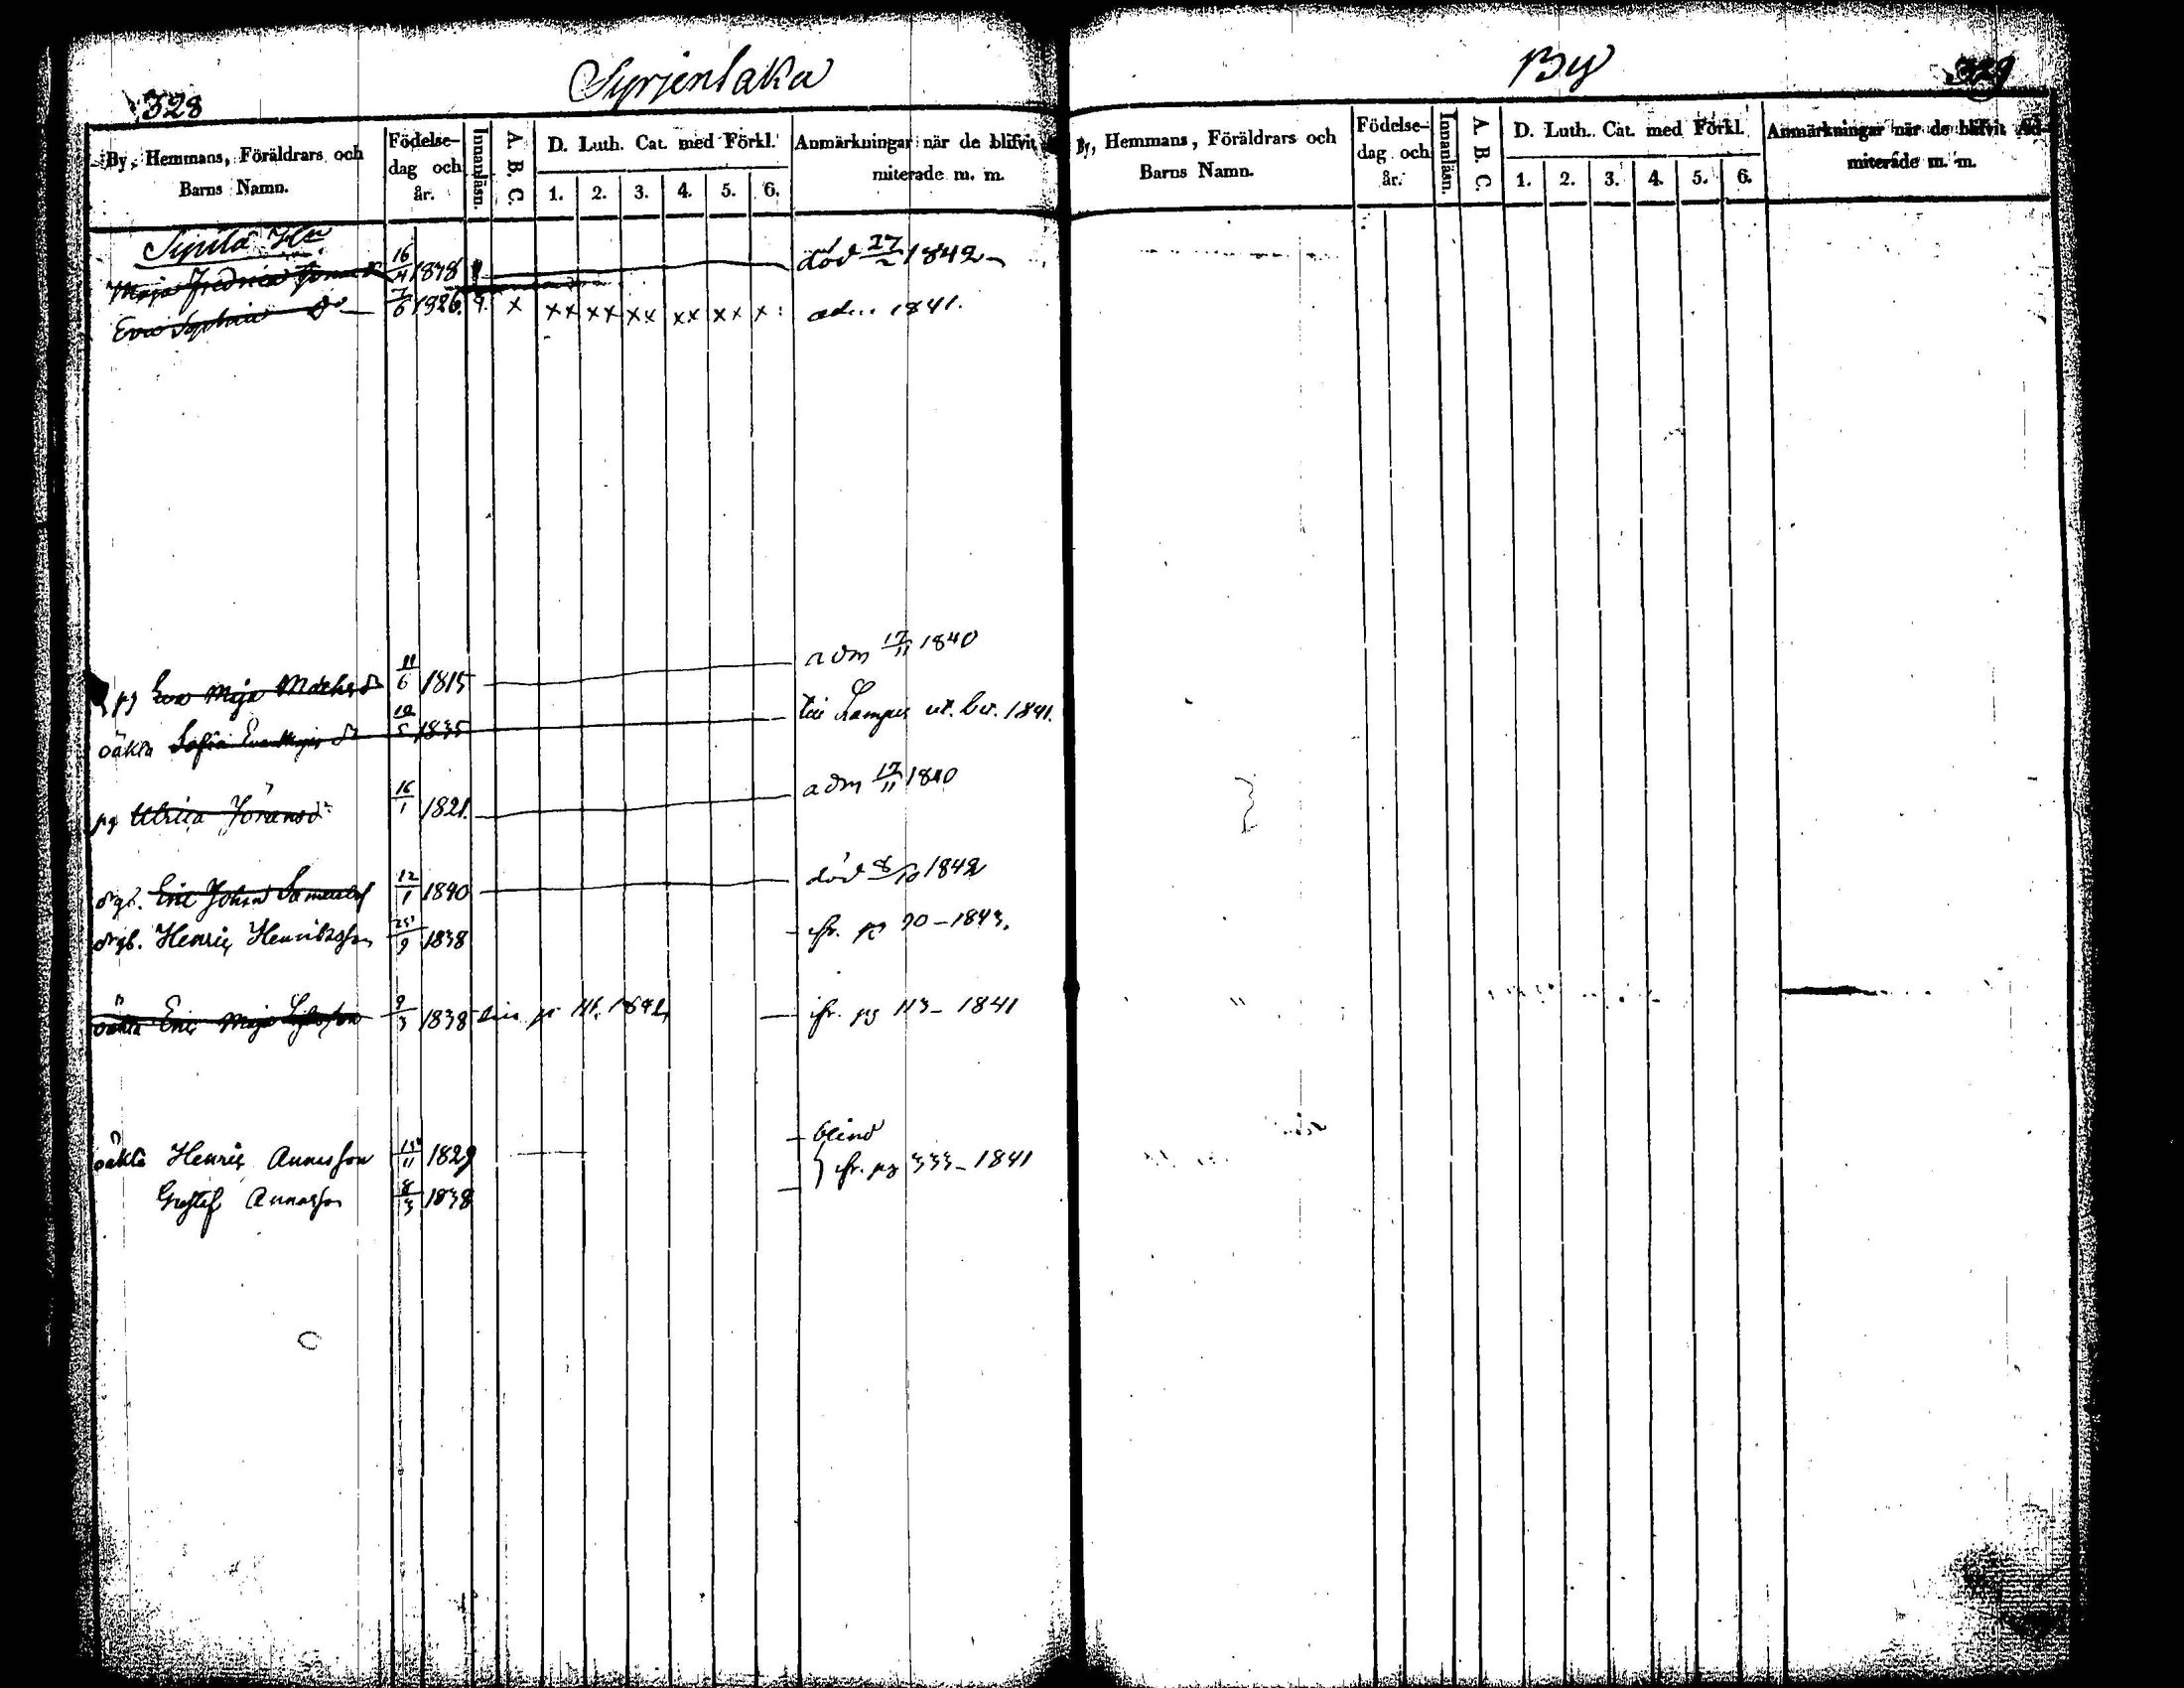 328
Syrjentaka
By, Hemmans, Föräldrars och Barns Namn.
Födelse-dag och år.
Innanläsn.
A. B. C.
D. Luth. Cat. med Förkl.
1. 2. 3. 4. 5. 6.
Anmärkningar när de blifvit
miterade m. m.
Maja Fredrica 16/4 1838 död 27/2 1842
Eva Sophia dr 7/6 1826. 9. x xx xx xx xx xx x adm 1841.
pg Eva Maja Mathsdr 11/6 1815 adm 17/11 1840
oäkta Sofia Eva Majas dr 10/5 1835 Lampis ut. bev. 1841.
pg Ulrica Jöransdr 16/1 1821. adm 17/11 1840
drgb. Eric Johan 12/1 1840 död 8/10 1842
drgb. Henric Henriksson 25/9 1838 fr. pg 70-1843.
oäkta Eric Maja 9/3 1838 pg 116. 1842 fr. pg 113-1841
blind
oäkta Henric Annasson 15/11 1829 fr. pg 333-1841
Gustaf Annasson 8/3 1838
By
329
By, Hemmans, Föräldrars och Barns Namn.
Födelse-dag och år.
Innanläsn.
A. B. C.
D. Luth. Cat. med Förkl.
1. 2. 3. 4. 5. 6.
Anmärkningar när de blifvit Ad-
miterade m. m.